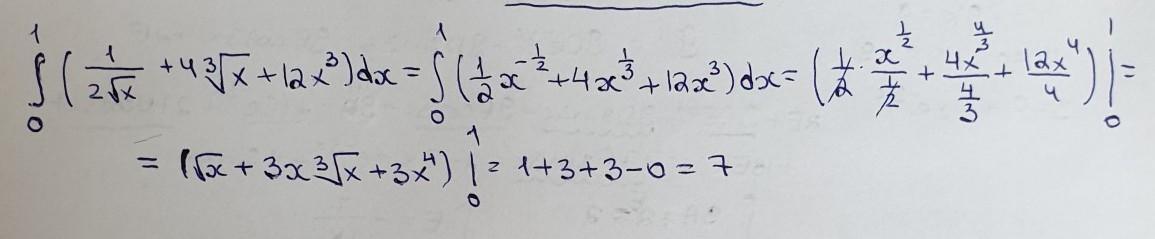 ∫₀¹ (1/(2√x) + 4∛x + 12x³)dx = ∫₀¹ (1/2 x^(-1/2) + 4x^(1/3) + 12x³)dx = (1/2 · x^(1/2)/(1/2) + 4x^(4/3)/(4/3) + 12x⁴/4) |₀¹ =
= (√x + 3x∛x + 3x⁴) |₀¹ = 1+3+3-0 = 7